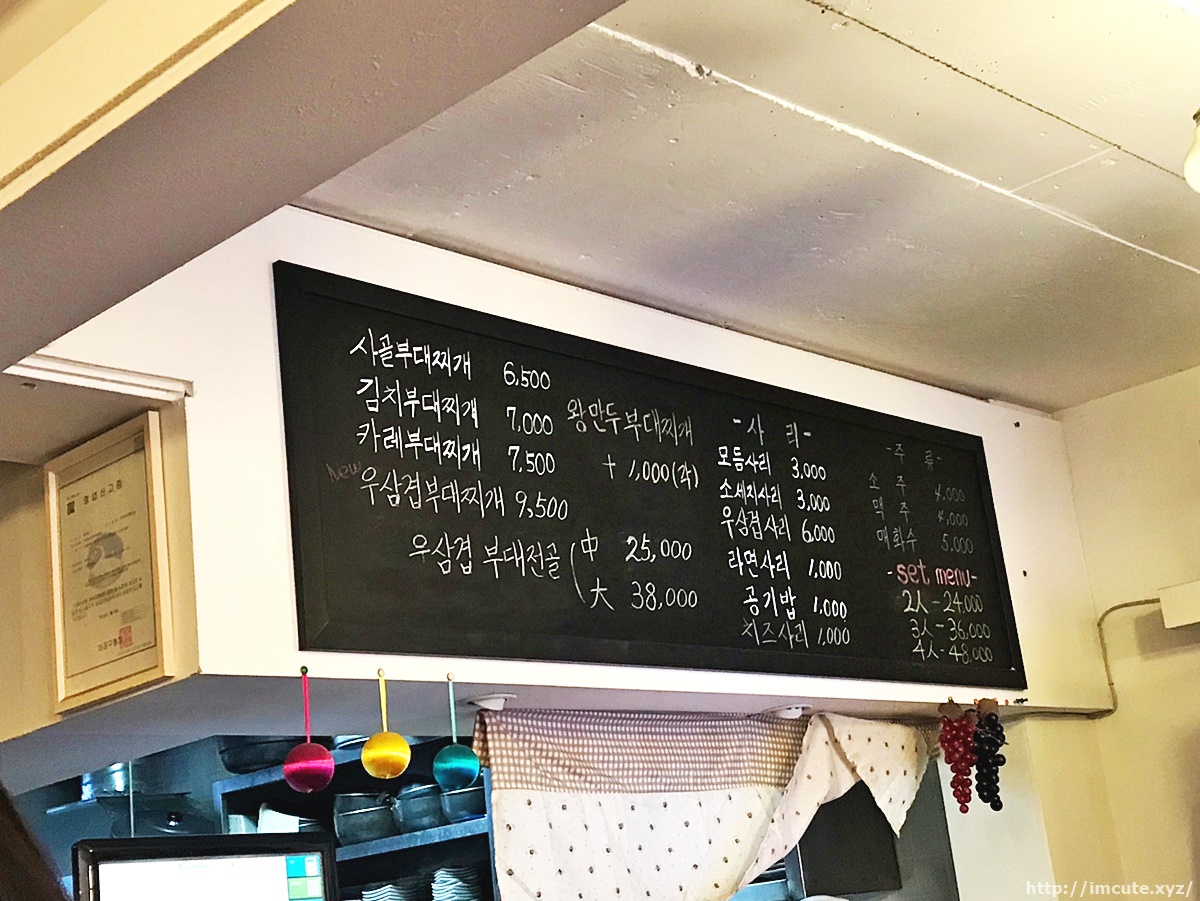 사골부대찌개 6,500
김치부대찌개 7,000
카레부대찌개 7,500
New
우삼겹부대찌개 9,500
우삼겹 부대전골 (中 25,000
大 38,000
왕만두부대찌개
+ 1,000(각)
-사 리-
모듬사리 3,000
소세지사리 3,000
우삼겹사리 6,000
라면사리 1,000
공기밥 1,000
치즈사리 1,000
-주 류-
소 주 4,000
맥 주 4,000
매화수 5,000
-set menu-
2人-24,000
3人-36,000
4人-48,000
영업신고증
http://imcute.xyz/